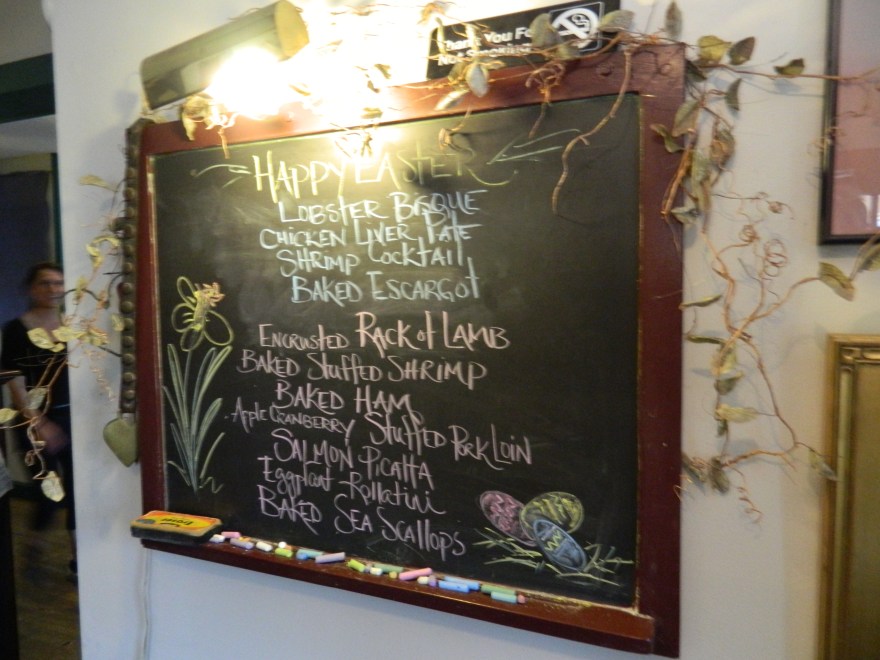 Thank You For
Not Smoking
HAPPY EASTER
LOBSTER BISQUE
CHICKEN LIVER PATE
SHRIMP COCKTAIL
BAKED ESCARGOT
ENCRUSTED RACK of LAMB
BAKED Stuffed SHRIMP
BAKED HAM
Apple CRANBERRY Stuffed PORK LOIN
SALMON PICATTA
Eggplant Rollatini
BAKED SEA SCALLOPS